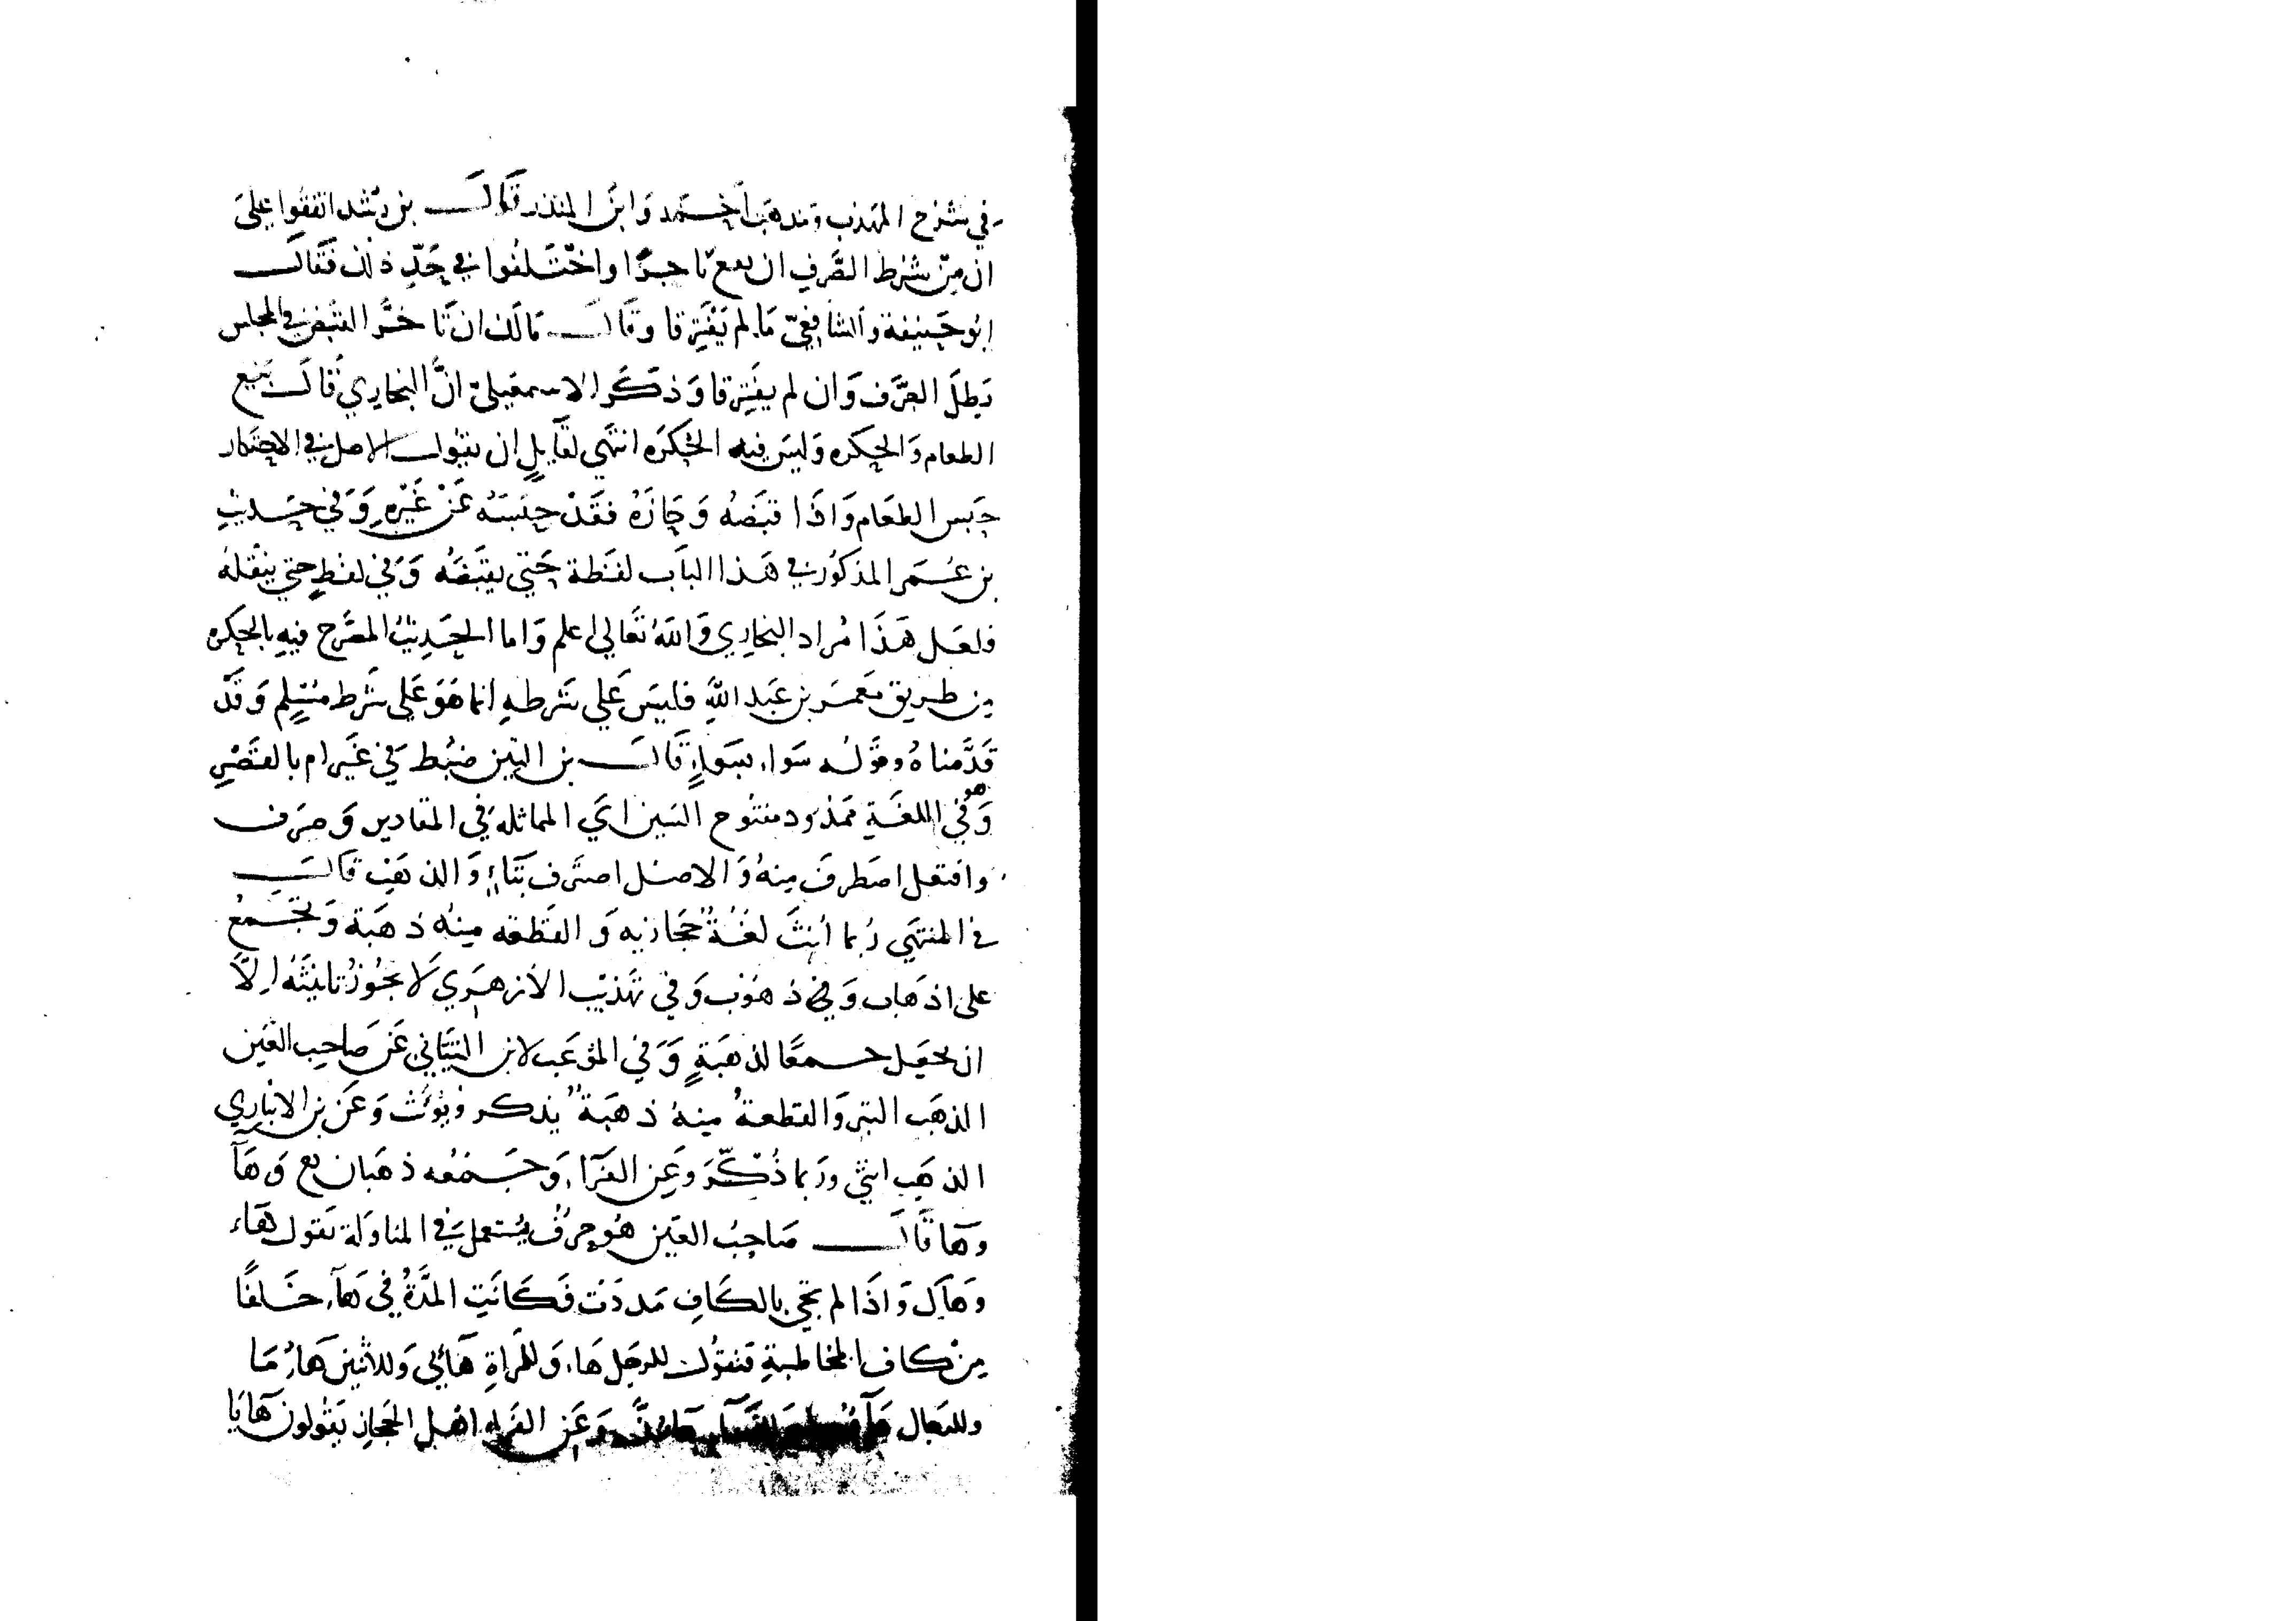 في شرح المهذب ومذهب أحمد وابن المنذر قال بن رشد اتفقوا على
ان من شرط الصرف ان يقع ناجزا واختلفوا في حد ذلك فقال
ابو حنيفة والشافعي ما لم يفترقا وقال مالك ان تاخر القبض في المجلس
بطل الصرف وان لم يفترقا وذكر الاسمعيلي ان البخاري قال بيع
الطعام والحكره وليس فيه الحكره انتهى لقايل ان يقول الاصل في الاحتكار
حبس الطعام واذا قبضه وحازه فقد حبسه عن غيره وفي حديث
بن عمر المذكور في هذا الباب لفظة حتى يقبضه وفي لفظ حتى ينقله
فلعل هذا مراد البخاري والله تعالى اعلم واما الحديث المصرح فيه بالحكره
من طريق معمر بن عبد الله فليس على شرطه انما هو على شرط مسلم وقد
قدمناه وقوله سواء بسواء قال بن التين ضبط في غير ام بالقصر
وهو في اللغة ممدود مفتوح السين اي المماثله في المقادير وصرف
وافتعل اصطرف منه والاصل اصترف بتاء والذهب قال
في المنتهى ربما أنث لغة حجازيه والقطعه منه ذهبة وتجمع
على اذهاب وفي ذهوب وفي تهذيب الأزهري لا يجوز تانيثه الا
ان يجعل جمعا لذهبة وفي الموعب لابن التياني عن صاحب العين
الذهب التبر والقطعة منه ذهبة يذكر ويؤنث وعن بن الانباري
الذهب انثى وربما ذكر وعن الفراء وجمعه ذهبان وها
وها قال صاحب العين هو حرف يستعمل في المناولة تقول هاء
وهاك واذا لم تجي بالكاف مددت فكانت المدة في هاء خلفا
من كاف المخاطبة فتقول للرجل هاء وللمراة هائي وللاثنين هاؤما
وللرجال وعن الفراء اهل الحجاز يقولون هايا